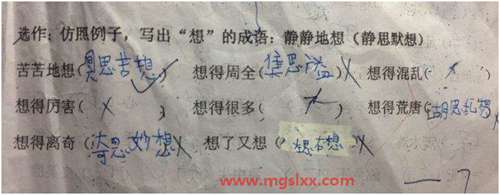 选作：仿照例子，写出“想”的成语：静静地想（静思默想）
苦苦地想（冥思苦想）✓ 想得周全（焦思 ）× 想得混乱（×
想得厉害（×） 想得很多（×） 想得荒唐（胡思乱想
想得离奇（奇思妙想× 想了又想（想右想）×
—7
www.mgslxx.com